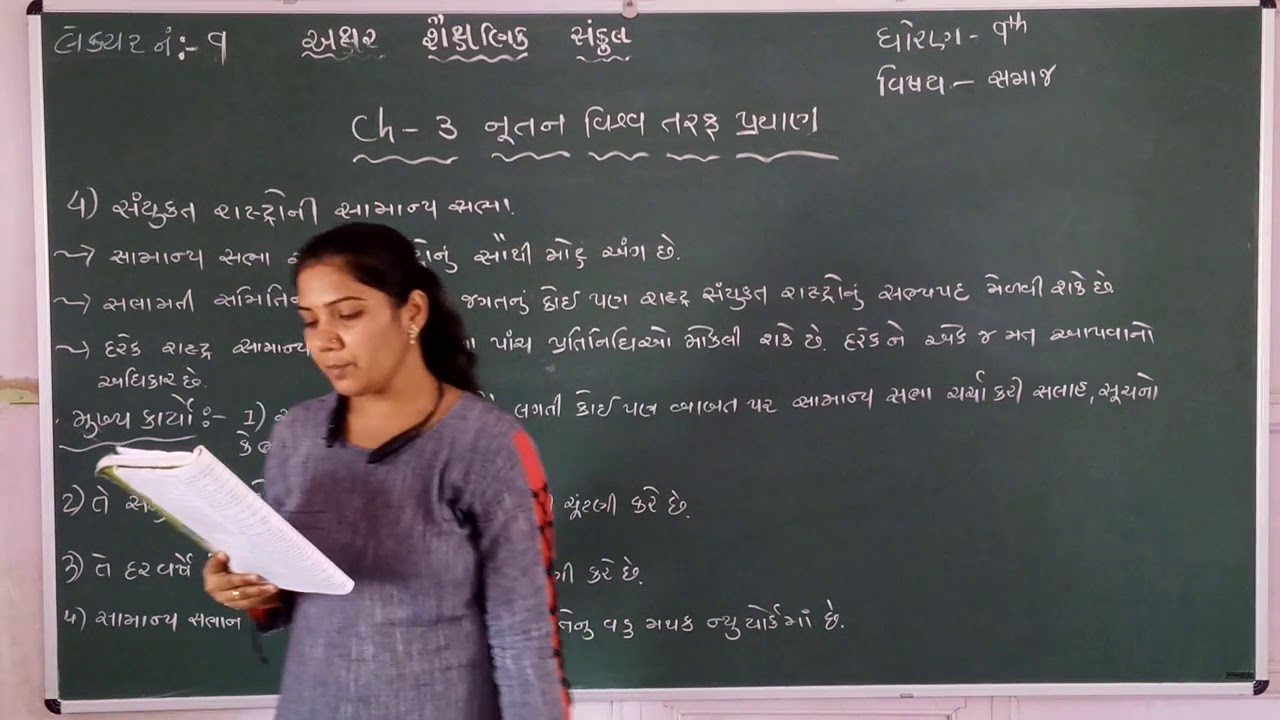 લેકચર નં:- ૧ અક્ષર શૈક્ષણિક સંકુલ ધોરણ - ૧th
વિષય - સમાજ
Ch - ૩ નૂતન વિશ્વ તરફ પ્રયાણ
4) સંયુકત રાષ્ટ્રોની સામાન્ય સભા.
→ સામાન્ય સભા સૌથી મોટુ અંગ છે.
→ સલામતી જગતનું કોઈ પણ રાષ્ટ્ર સંયુકત રાષ્ટ્રોનું સભ્યપદ મેળવી શકે છે
→ દરેક રાષ્ટ્ર સામાન્ય પાંચ પ્રતિનિધિઓ મોકલી શકે છે. દરેક ને એક જ મત આપવાનો
અધિકાર છે.
મુખ્ય કાર્યો :- 1) લગતી કોઈ પણ બાબત પર સામાન્ય સભા ચર્ચા કરી સલાહ, સૂચનો
2) તે ચૂંટણી કરે છે.
3) તે દર વર્ષે કરે છે.
4) સામાન્ય તેનુ વડુ મથક ન્યુયોર્કમાં છે.